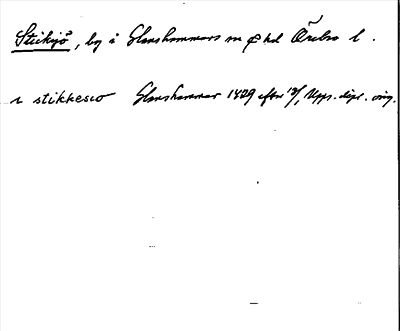 Sticksjö, by i Glanshammars sn o hd Örebro l.
i stikkesio Glanshammar 1429 efter 12/1 Upps. dipl. orig.